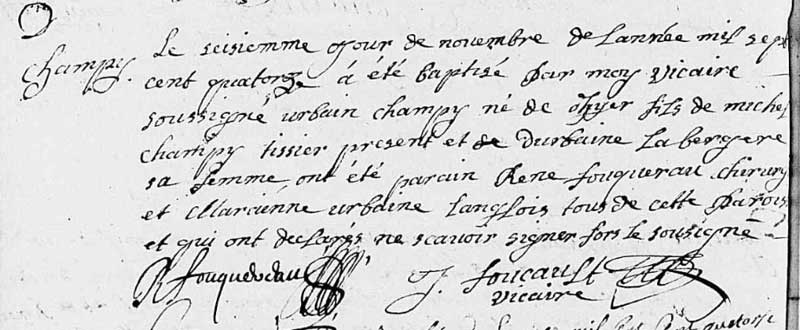 Champy.
Le seisiemme Jour de novembre de Lannée mil sept
cent quatorze à été baptisé par moy vicaire
soussigné urbain champy né de hyer fils de michel
champy tissier present et de Durbaine La bergere
sa femme, ont été parain Rene fouquerau chirurg
et Marcienne urbaine Langlois tous de cette parois
et qui ont declarés ne scavoir signer fors le sousigné
R fouquereau J. foucault
vicaire